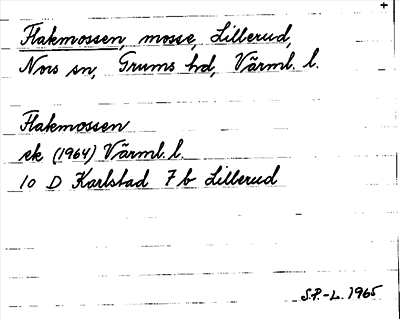 Flakmossen, mosse, Lillerud,
Nors sn, Grums hd, Värml. l.
Flakmossen
ek (1964) Värml. l.
10 D Karlstad 7 b Lillerud
S.P.-L. 1965